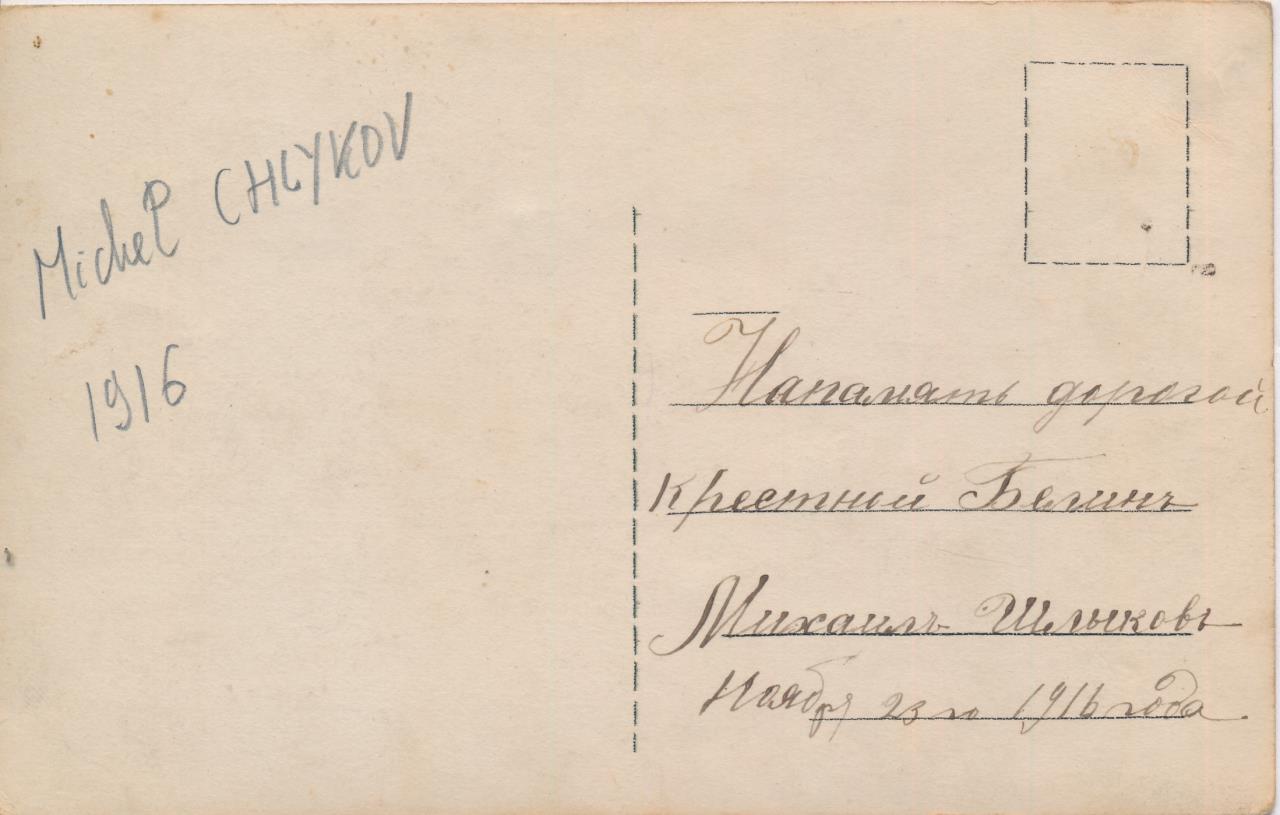 Michel CHLYKOV
1916
Напамять дорогой
крестной
Михаилъ Шлыковъ
Ноября 23 го 1916 года.